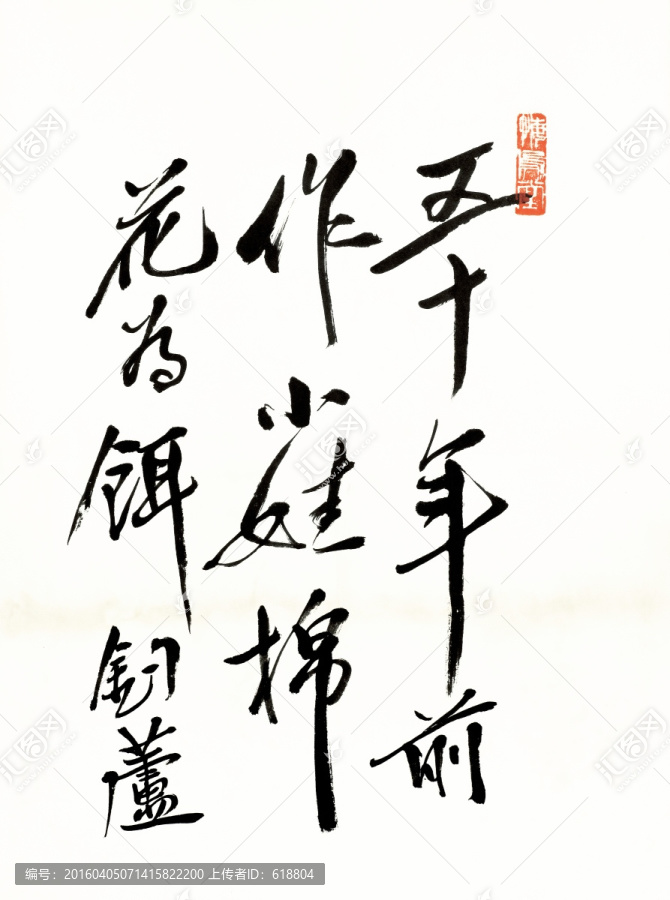 五十年前
作小娃棉
花為餌釣蘆
汇图网
编号：20160405071415822200 上传者ID：618804